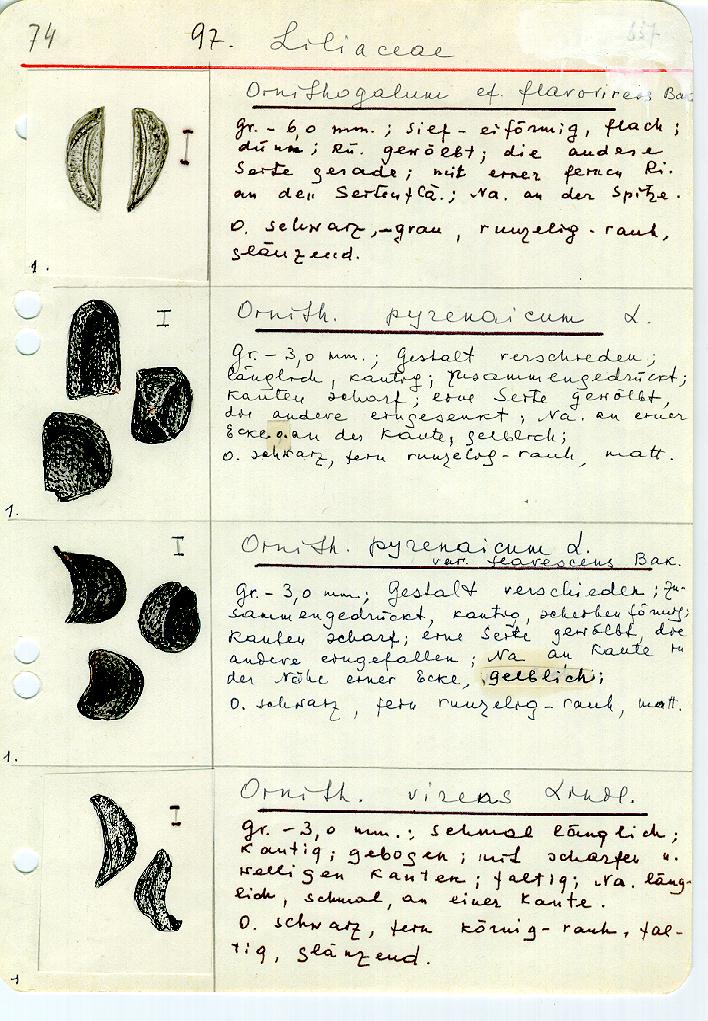 74 97. Liliaceae 657
Ornithogalum cf. flavovirens Bak.
Gr. - 6,0 mm.; sief-eiförmig, flach;
dünn; Rü. gewölbt; die andere
Seite gerade; mit einer feinen Ri.
an den Seitenflä.; Na. an der Spitze.
O. schwarz,-grau, runzelig-rauh,
glänzend.
1.
Ornith. pyrenaicum L.
Gr. - 3,0 mm.; Gestalt verschieden;
länglich, kantig; zusammengedrückt;
Kanten scharf; eine Seite gewölbt,
die andere eingesenkt; Na. an einer
Ecke o. an der Kante, gelblich;
O. schwarz, fein runzelig-rauh, matt.
1.
Ornith. pyrenaicum L.
var. flavescens Bak.
Gr. - 3,0 mm.; Gestalt verschieden; zu-
sammengedrückt, kantig, scherbenförmig;
Kanten scharf; eine Seite gewölbt, die
andere eingefallen; Na an Kante in
der Nähe einer Ecke, gelblich;
O. schwarz, fein runzelig-rauh, matt.
1.
Ornith. virens Lindl.
Gr. - 3,0 mm.; schmal länglich;
kantig; gebogen; mit scharfen u.
welligen Kanten; faltig; Na. läng-
lich, schmal, an einer Kante.
O. schwarz, fein körnig-rauh, fal-
tig, glänzend.
1